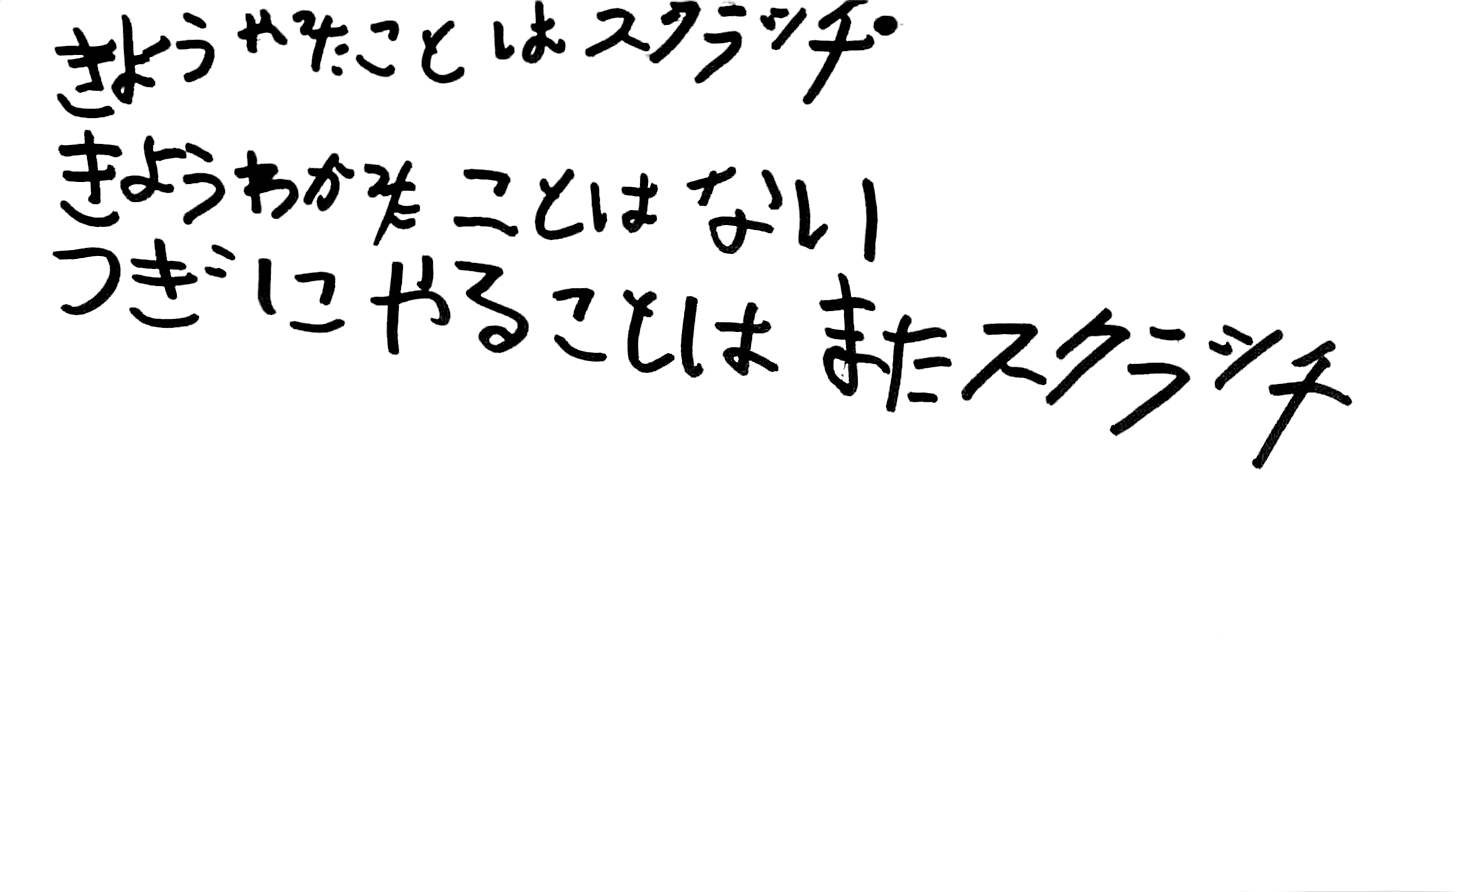 きょうやったことはスクラッチ・
きょうわかったことはない
つぎにやることはまたスクラッチ